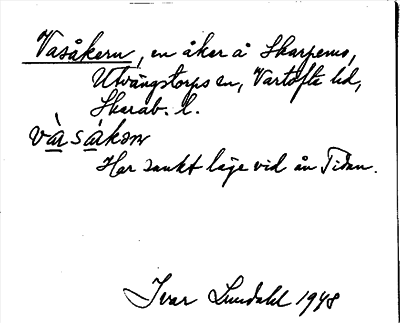 Vasåkern, en åker å Skarpenås,
Utvängstorps sn, Vartofta hd,
Skarab. l.
và sákɷn
Har sankt läge vid ån Tidan.
Ivar Lundahl 1948